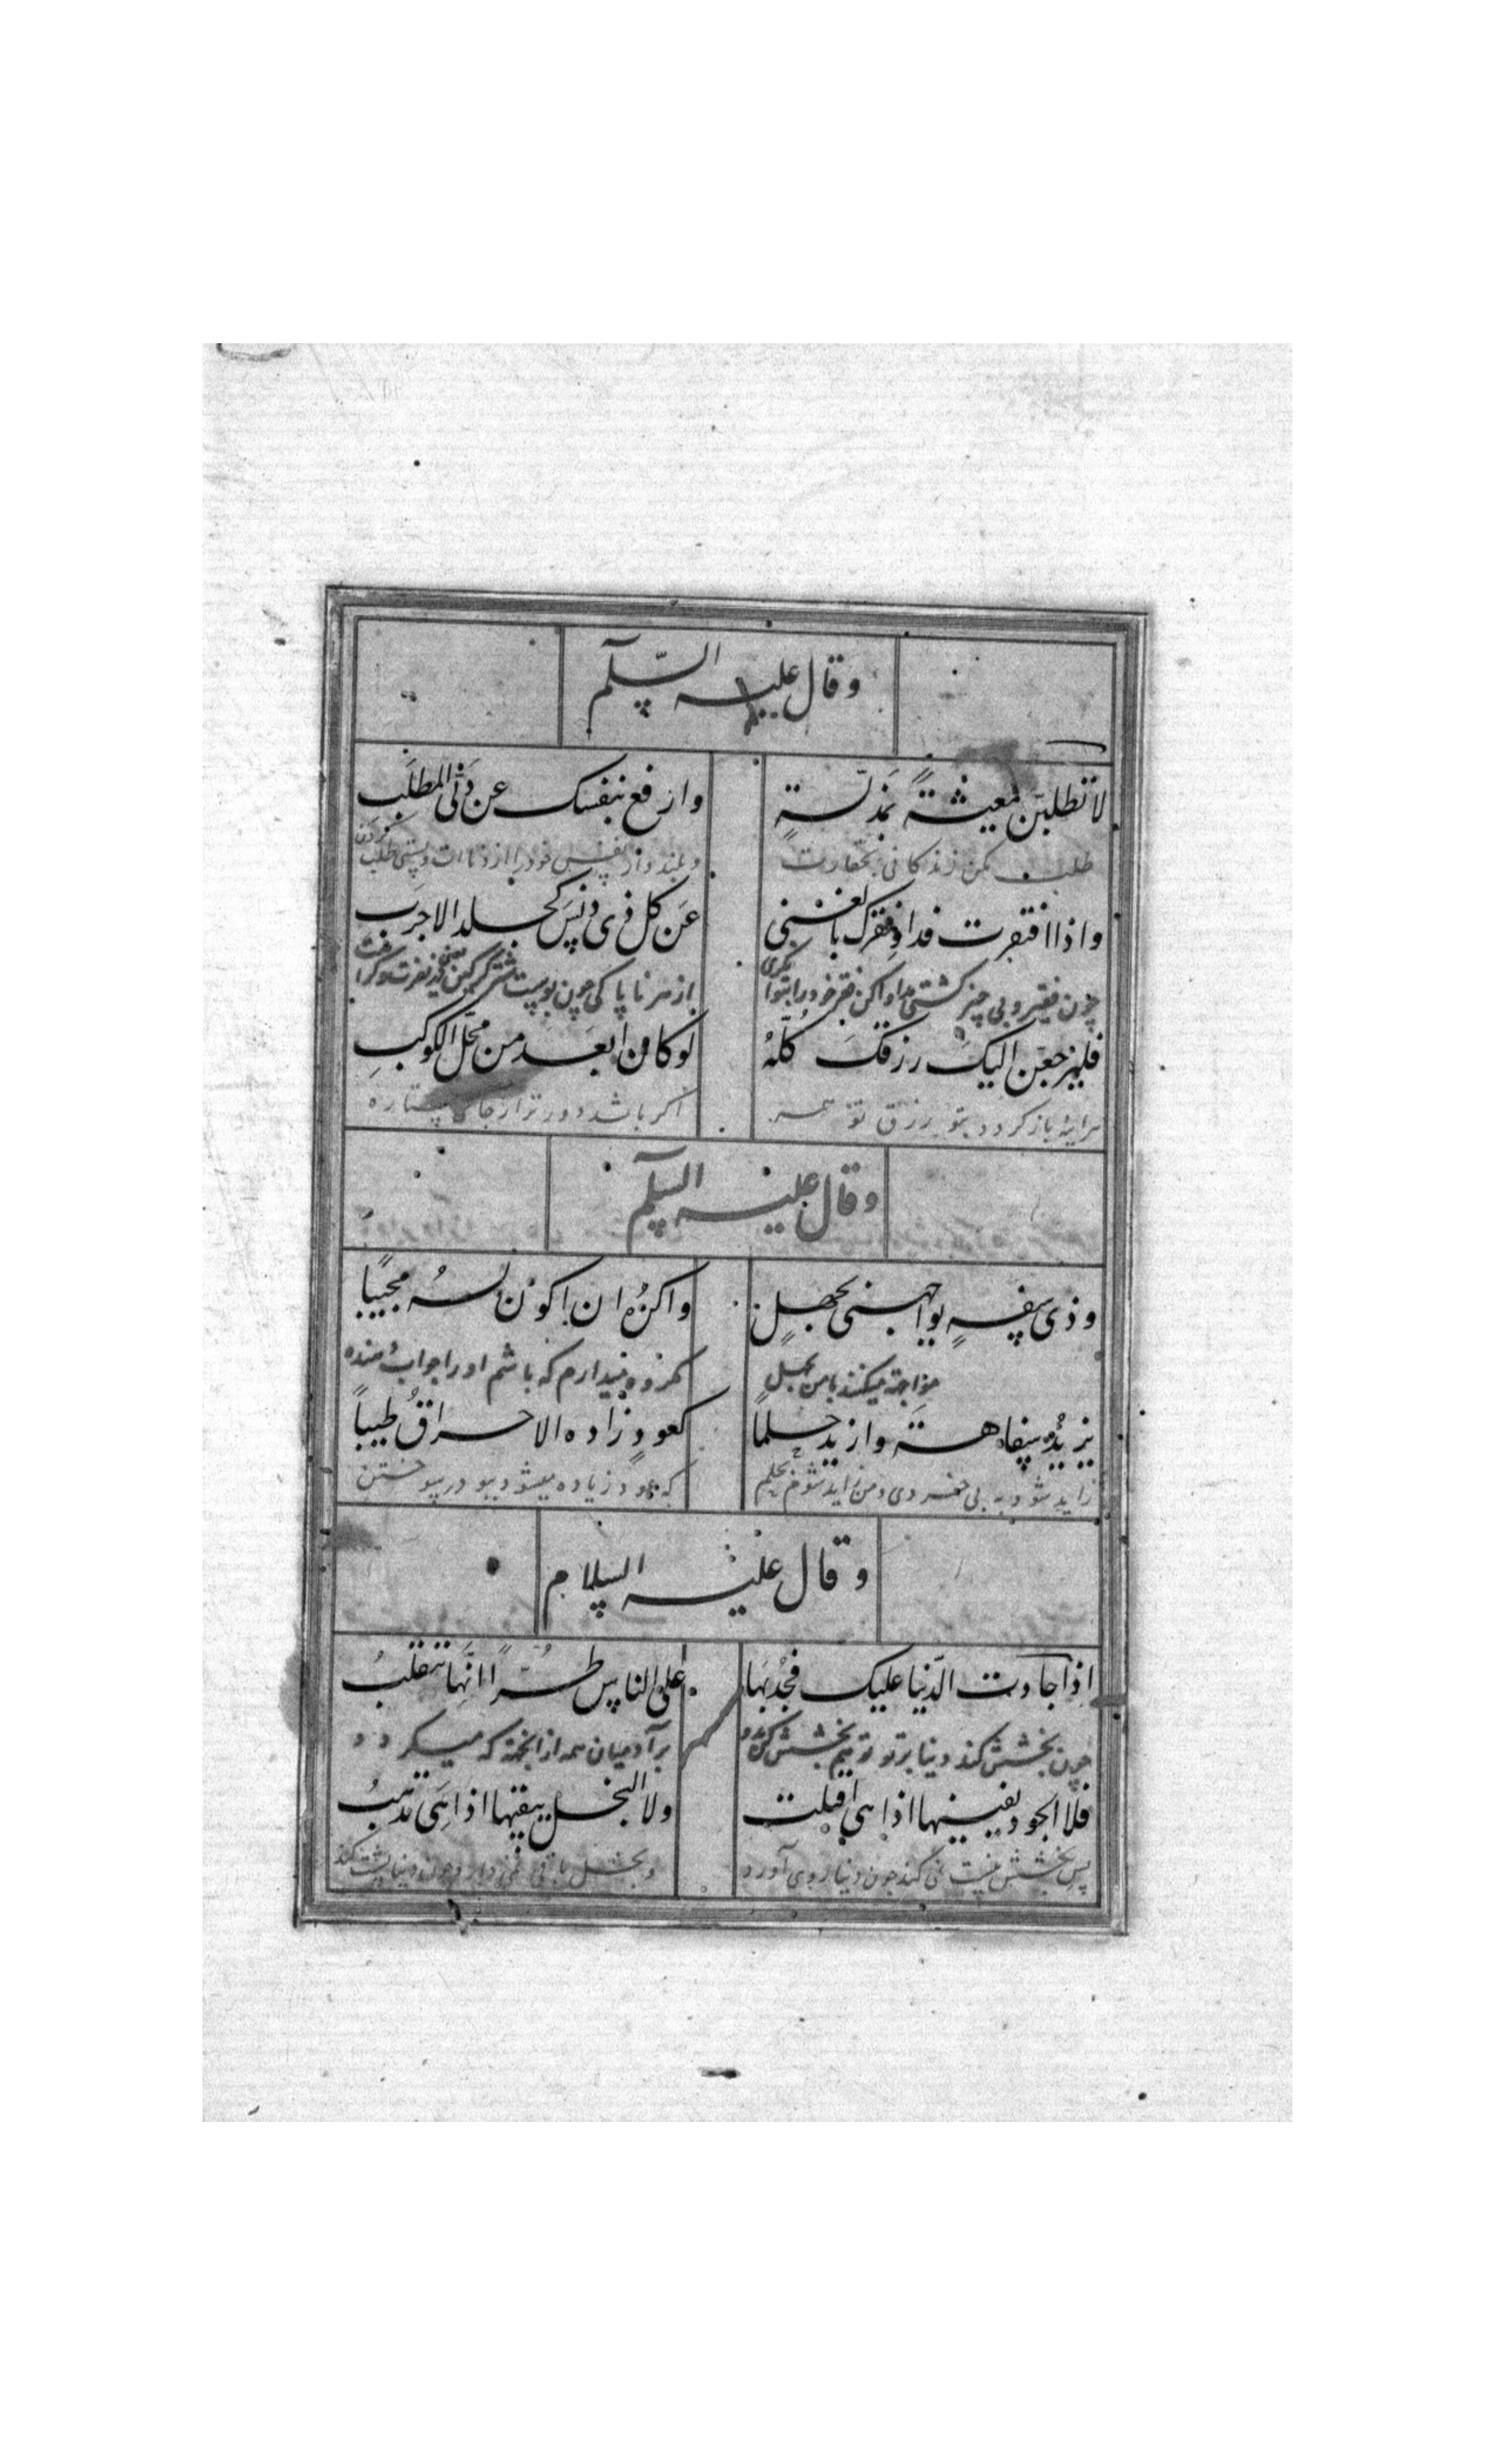 وقال علیه السّلم
لا تطلبن معیشةً بمذلّةٍ وارفع بنفسک عن دنی المطلب
طلب مکن زندکانی بحقارت وبلند دار نفس خود را از دناات وپستی طلب کردن
واذا افتقرت فداو فقرک بالغنی عن کل ذی دنس کجلد الاجرب
چون فقیر و بی چیز کشتی مداوا کن فقر خود را بتوانکری از هر ناپاکی چون پوست شتر کرکین
فلیرجعن الیک رزقک کلّهُ لو کان ابعد من محّل الکوکبِ
هراینه باز کردد بتو رزق تو همه اکر باشد دورتر از جای ستاره
وقال علیه السلم
وذی سفهٍ یواجهنی بجهلٍ واکرهُ ان اکون لهُ مجیبًا
مواجهه میکنند بامن بجهل مکروه میدارم که باشم او را جواب دهنده
یزیدُ سفاهة وازید حلماً کعودٍ زاده الاحراقُ طیباً
زاید شود به بی خردی ومن زاید شوم بحلم که عود زیاده میشود ببو در سوختن
وقال علیه السلام
اذا جادت الدّنیا علیک فجُد بها علی الناس طُرّاً انّها تتقلبُ
چون بخشش کند دنیا بر تو تو هم بخشش کن بدو بر آدمیان همه از انجهة که میکردد
فلا الجود یفنیها اذا هی اقبلت ولا البخل یبقیها اذا هَی تذهبُ
پس بخشش نیست نمی کند چون دنیا روی آورد وبخل باقی نمی دارد چون دنیا پشت کند